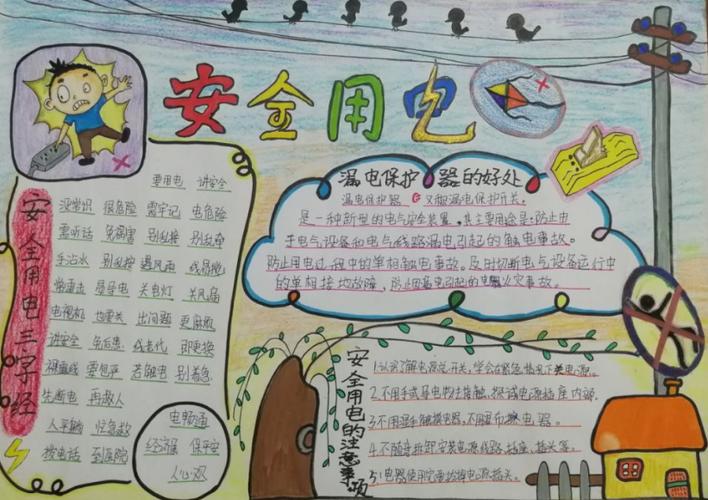 安全用电
安全用电三字经
要用电 讲安全
没常识 很危险 需牢记 电危险
需听话 免祸害 别乱接 别乱牵
手沾水 别乱接 遇风雨 线易揽
雷电击 易导电 关电灯 关风扇
电视机 也要关 出问题 更麻烦
讲安全 免后患 线老代 即更换
裸露线 要包严 若触电 别着急
先断电 再救人
人平躺 快急救
拨电话 到医院
电畅通
经济保 保平安
人心欢
漏电保护器的好处
漏电保护器 又叫漏电保护开关,
是一种新型的电气安全装置,其主要用途是:防止由
于电气设备和电气线路漏电引起的触电事故。
防止用电过程中的单相触电事故。及时切断电气设备运行中
的单相接地故障,防止因漏电引起的电气火灾事故。
安全用电的注意事项
1.认识了解电源总开关,学会在紧急情况下关电源。
2.不用手或导电物去接触、探试电源插座内部。
3.不用湿手触摸电器,不用湿布擦电器。
4.不随意拆卸安装电源线路、插座、插头等。
5.电器使用完要拔掉电源插头。